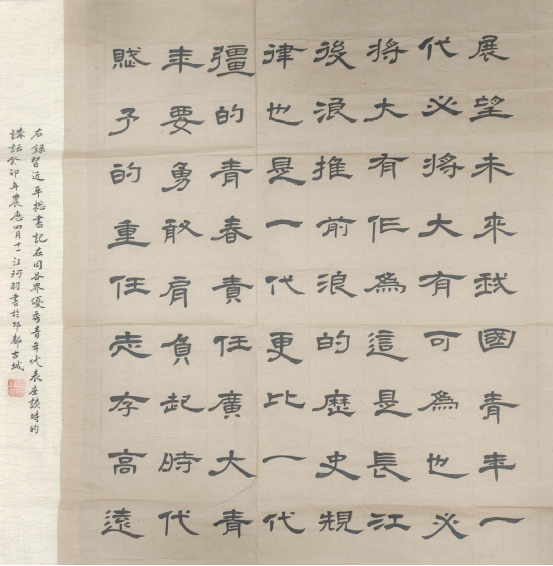 展望未來我國青年一
代必將大有可為也必
將大有作為這是長江
後浪推前浪的歷史規
律也是一代更比一代
彊的青春責任廣大青
年要勇敢肩負起時代
賦予的重任志存高遠
右錄習近平總書記在同各界優秀青年代表座談時的
講話癸卯年農歷四月十一江珂羽書於邛都古城